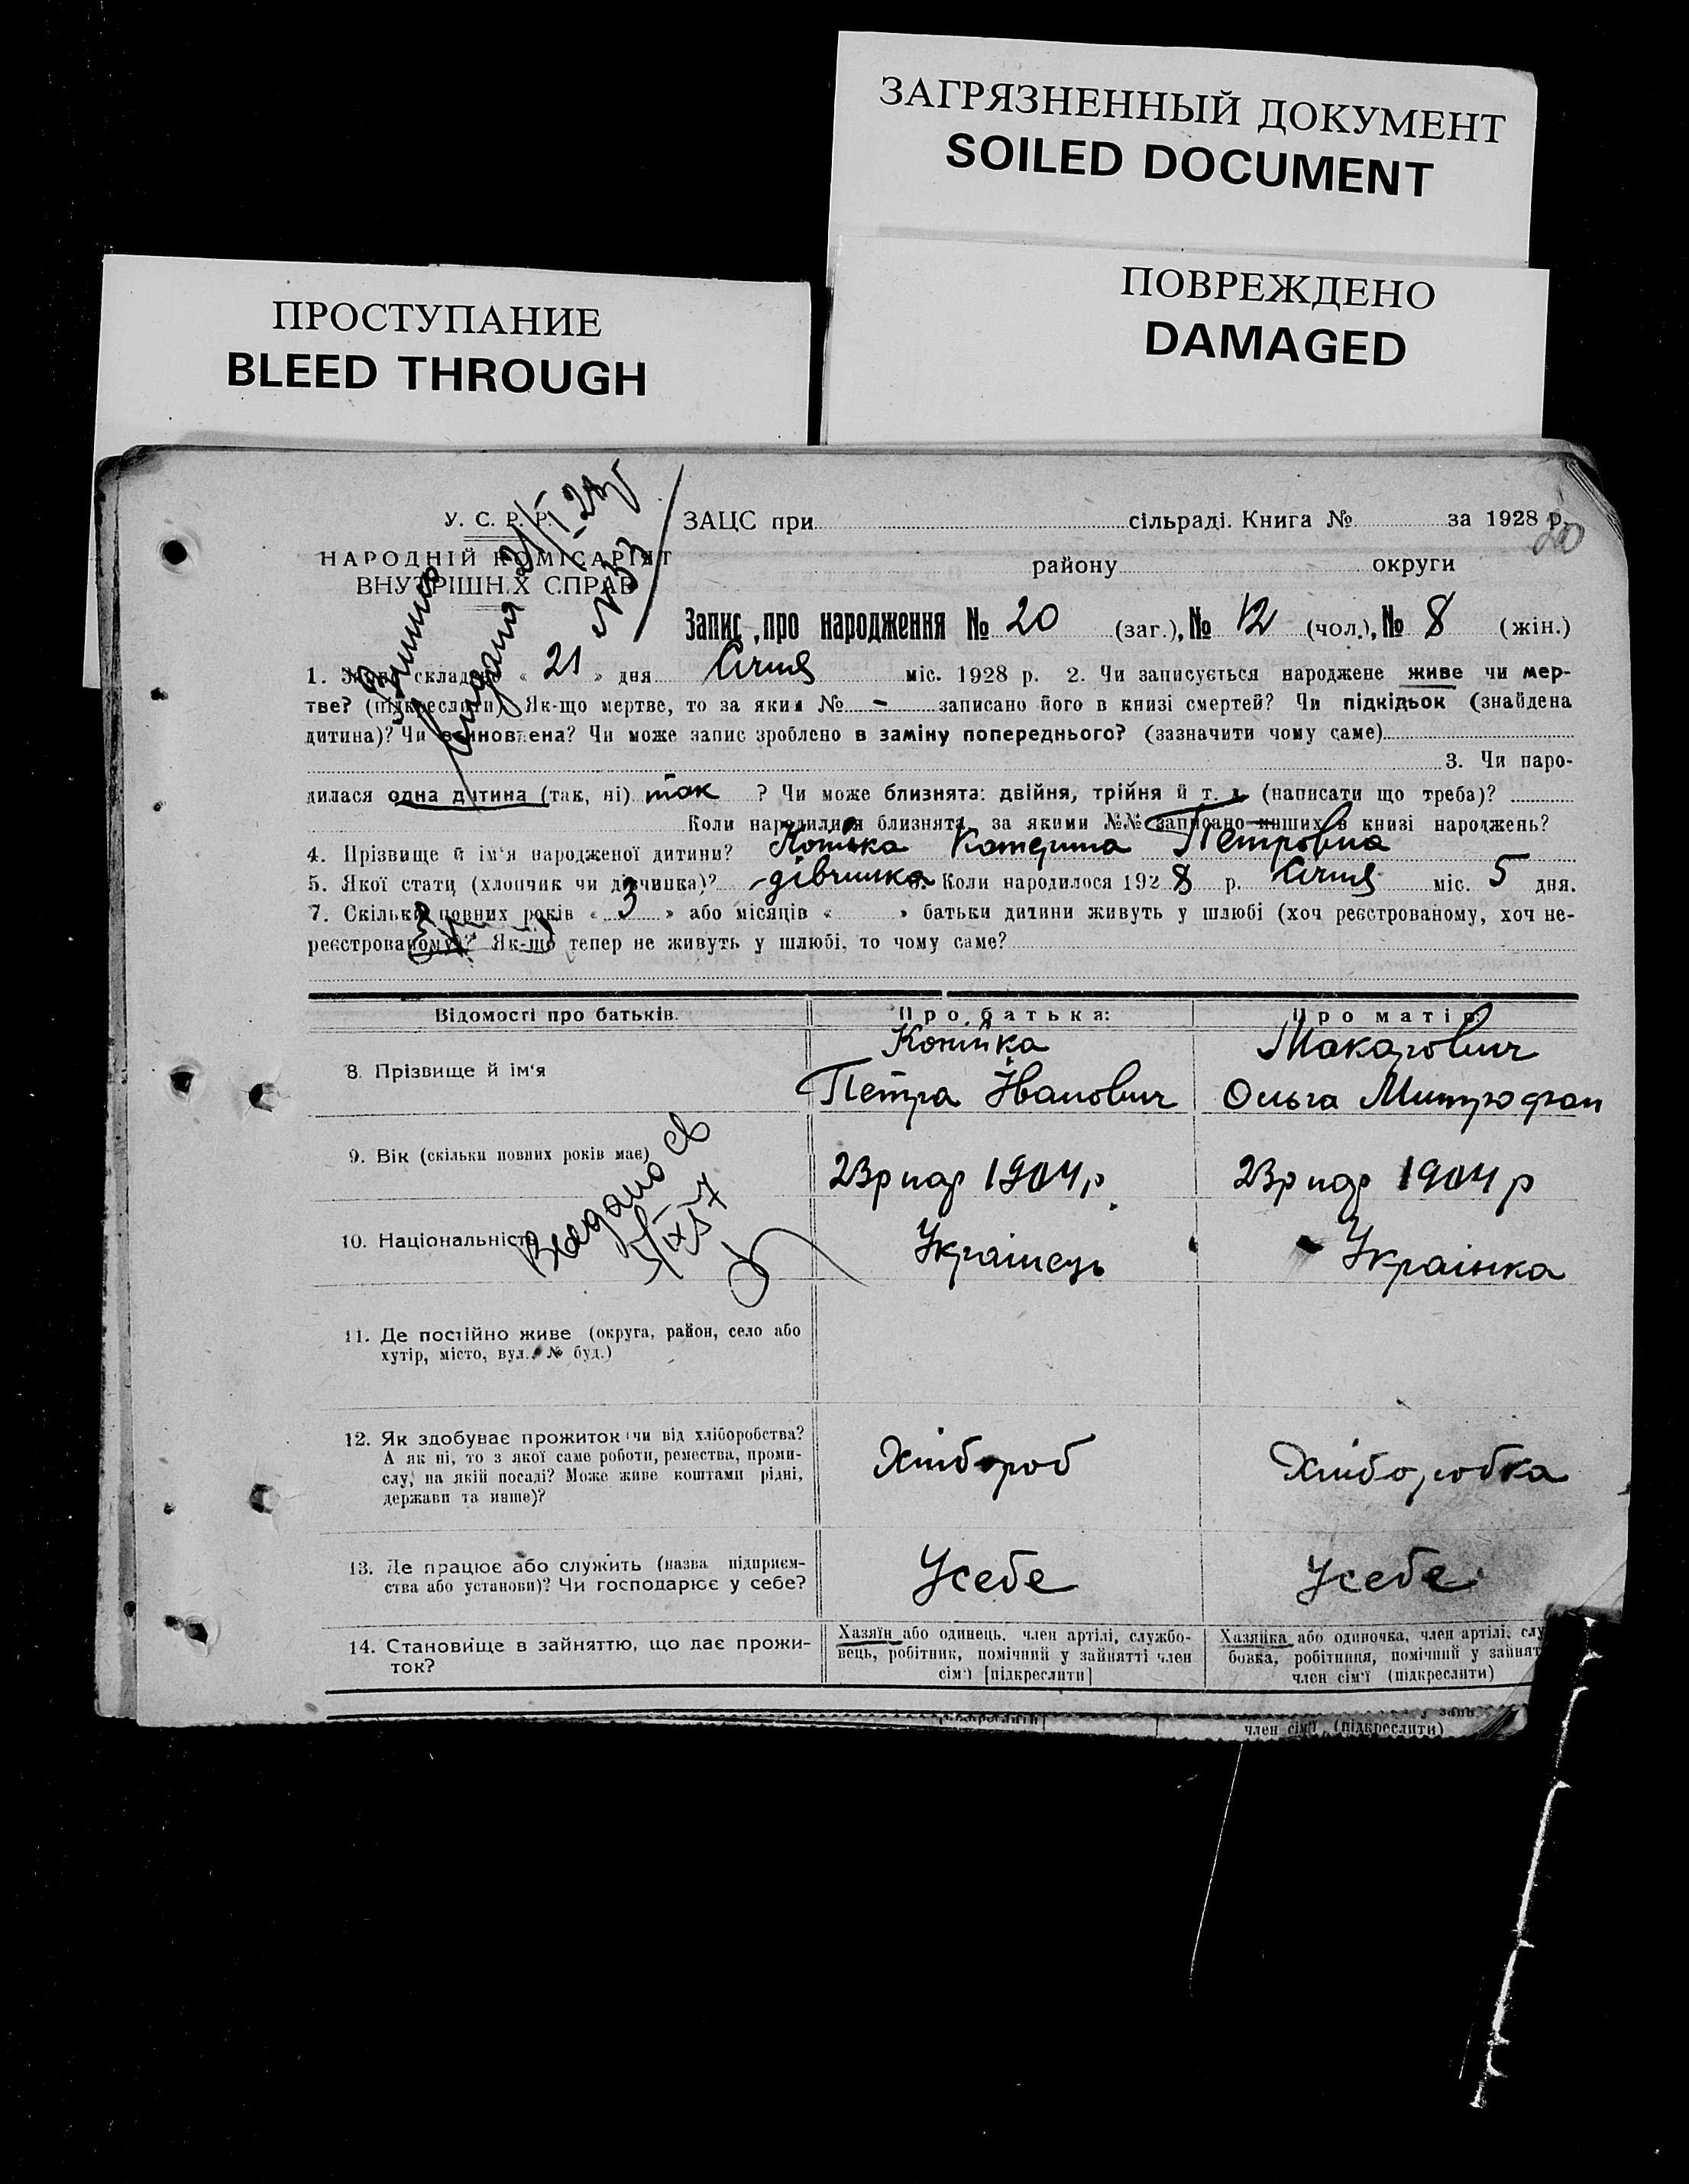 ЗАГРЯЗНЕННЫЙ ДОКУМЕНТ
SOILED DOCUMENT
ПРОСТУПАНИЕ
BLEED THROUGH
ПОВРЕЖДЕНО
DAMAGED
У. С. Р. Р.
НАРОДНІЙ КОМІСАРІЯТ
ВНУТРІШНІХ СПРАВ
ЗАЦС при сільраді. Книга № за 1928 р.
20
району округи
№ 33
Запис про народження № 20 (заг.), № 12 (чол.), № 8 (жін.)
1. складено « 21 » дня Січня міс. 1928 р. 2. Чи записується народжене живе чи мер-
тве? (підкреслити) Як-що мертве, то за яким № - записано його в книзі смертей? Чи підкідьок (знайдена
дитина)? Чи всиновлена? Чи може запис зроблено в заміну попереднього? (зазначити чому саме)
3. Чи наро-
дилася одна дитина (так, ні) так ? Чи може близнята: двійня, трійня й т. д. (написати що треба)?
Коли народилися близнята, за якими №№ записано инших в книзі народжень?
4. Прізвище й ім'я народженої дитини? Копійка Катерина Петровна
5. Якої статі (хлопчик чи дівчинка)? дівчинка Коли народилося 1928 р. Січня міс. 5 дня.
7. Скільки повних років « 3 » або місяців « » батьки дитини живуть у шлюбі (хоч реєстрованому, хоч не-
реєстрованому)? Як-що тепер не живуть у шлюбі, то чому саме?
Відомості про батьків. Про батька: Про матір:
8. Прізвище й ім'я
Копійка Макарович
Петра Іванович Ольга Митрофан
9. Вік (скільки повних років має)
23р нар 1904р 23р нар 1904р
Видано св
5/IX 57
10. Національність Українець Українка
11. Де постійно живе (округа, район, село або
хутір, місто, вул. № буд.)
12. Як здобуває прожиток: чи від хліборобства?
А як ні, то з якої саме роботи, ремества, проми-
слу, на якій посаді? Може живе коштами рідні,
держави та инше)?
Хлібороб Хліборобка
13. Де працює або служить (назва підприєм-
ства або установи)? Чи господарює у себе?
Усебе Усебе
14. Становище в зайняттю, що дає прожи-
ток?
Хазяїн або одинець, член артілі, службо-
вець, робітник, помічний у зайнятті член
сім'ї [підкреслити]
Хазяйка або одиночка, член артілі, слу
бовка, робітниця, помічний у зайнят
член сім'ї (підкреслити)
член сім'ї (підкреслити)